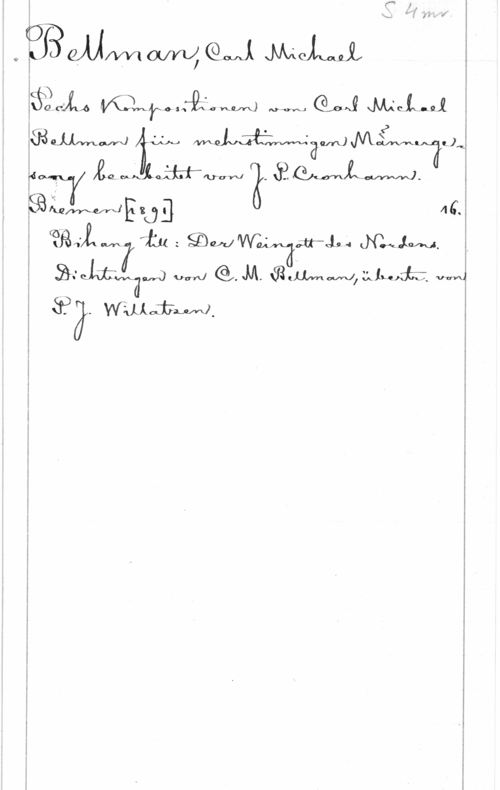 S 4 mr.
Bellman, Carl Michael
Sechs Kompositionen von Carl Michael
Bellman für mehrstimmigen Männerge-
sang bearbeitet von J. P. Cronhamn.
Bremen [1891] 16.
Bihang till: Der Weingott des Nordens.
Dichtungen von C. M. Bellman, übertr. von
P. J. Willatzen.